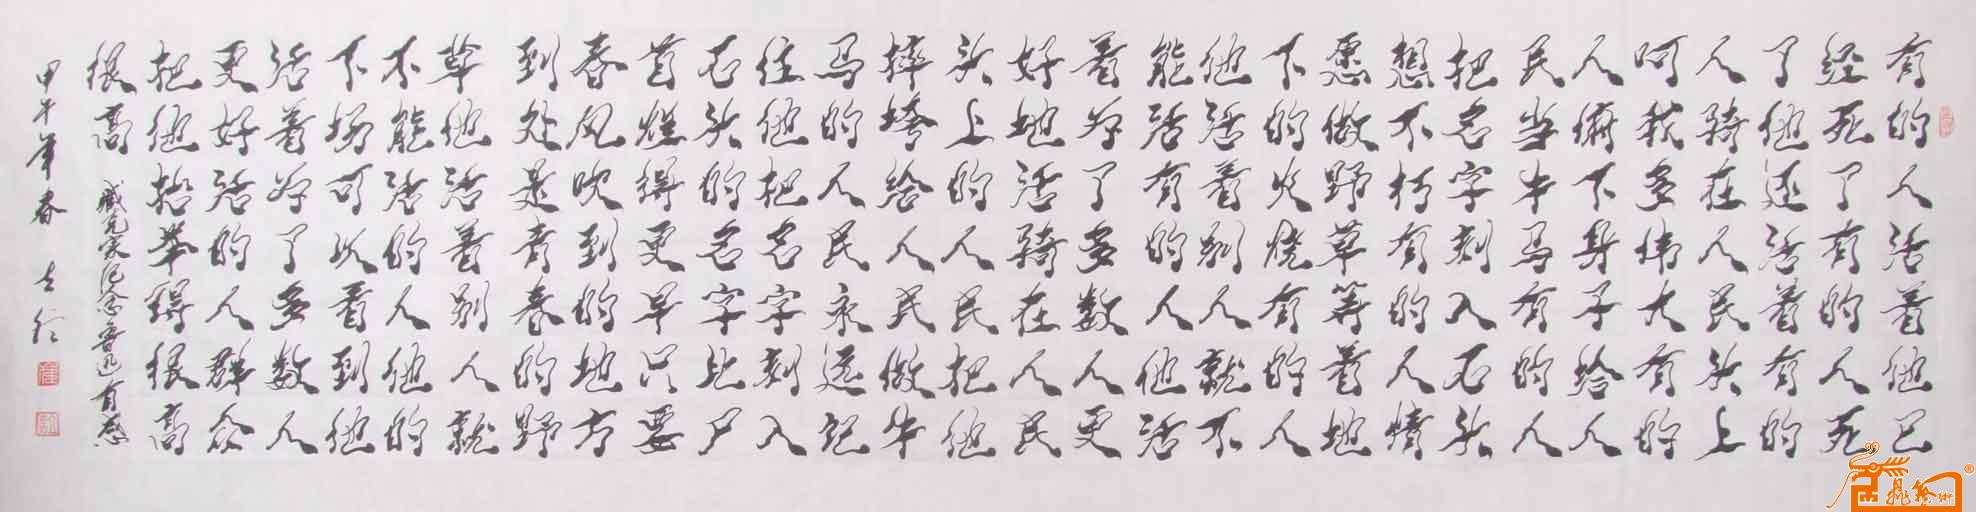 有的人活着他已
经死了有的人死
了他还活着有的
人骑在人民头上
呵我多伟大有的
人俯下身子给人
民当牛马有的人
把名字刻入石头
想不朽有的人情
愿做野草等着地
下的火烧有的人
他活着别人就不
能活有的人他活
着为了多数人更
好地活骑在人民
头上的人民把他
摔垮给人民做牛
马的人民永远记
住他把名字刻入
石头的名字比尸
首烂得更早只要
春风吹到的地方
到处是青春的野
草他活着别人就
不能活的人他的
下场可以看到他
活着为了多数人
更好活的人群众
把他抬举得很高
很高 臧克家纪念鲁迅有感
甲午年春